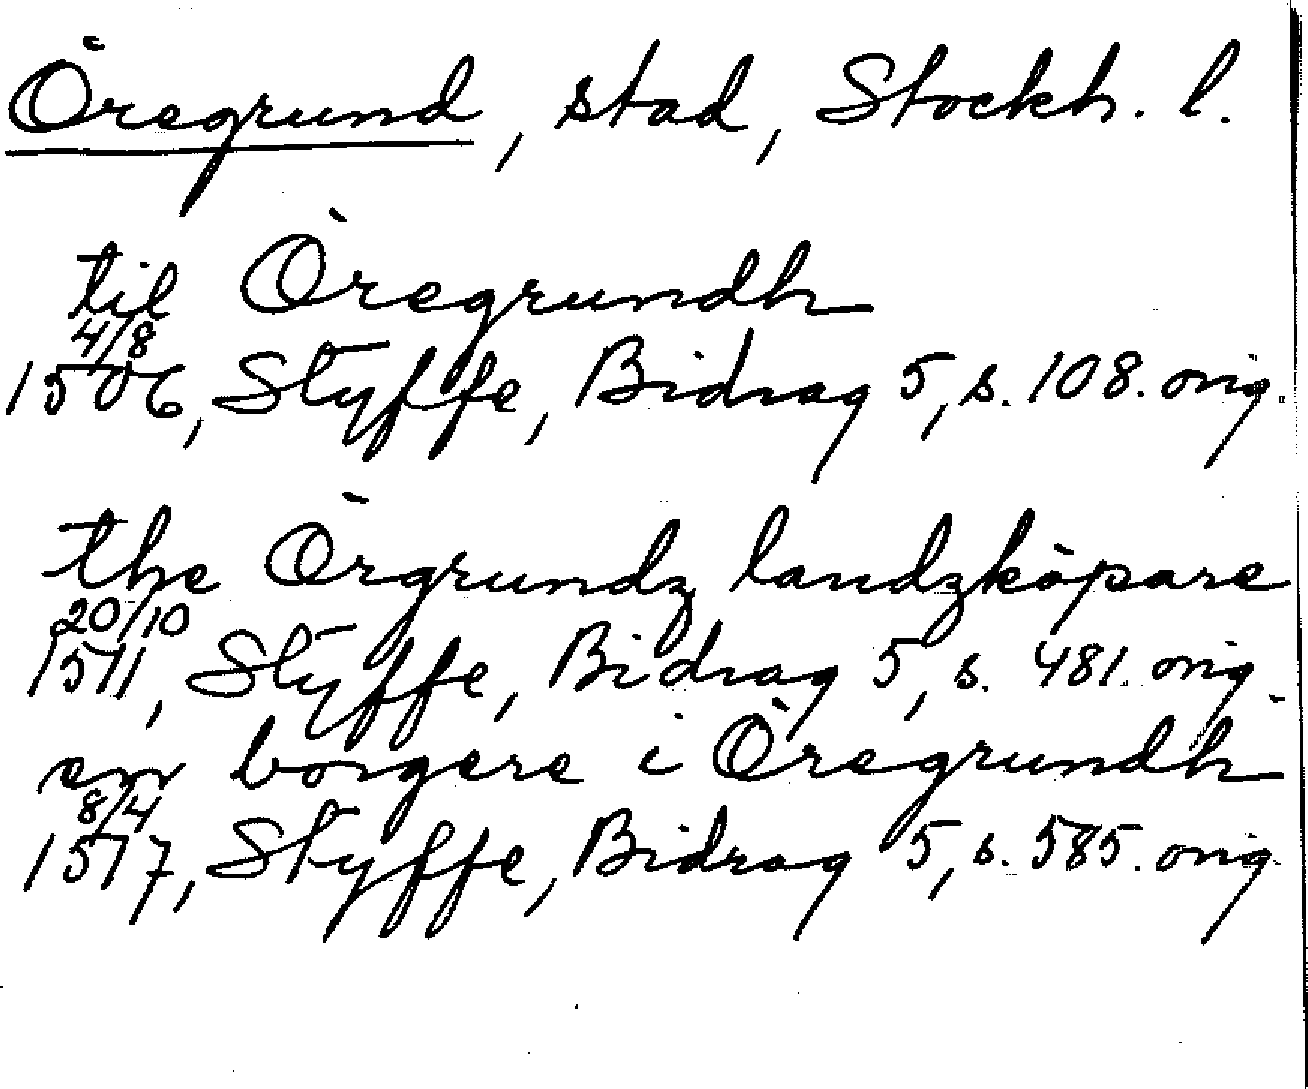 Öregrund, stad, Stockh. l.
til Öregrundh
4/8
1506, Styffe, Bidrag 5, s. 108. orig.
the Örgrundz landzköpare
20/10
1511, Styffe, Bidrag 5, s. 481. orig.
en borgere i Öregrundh
8/4
1517, Styffe, Bidrag 5, s. 585. orig.